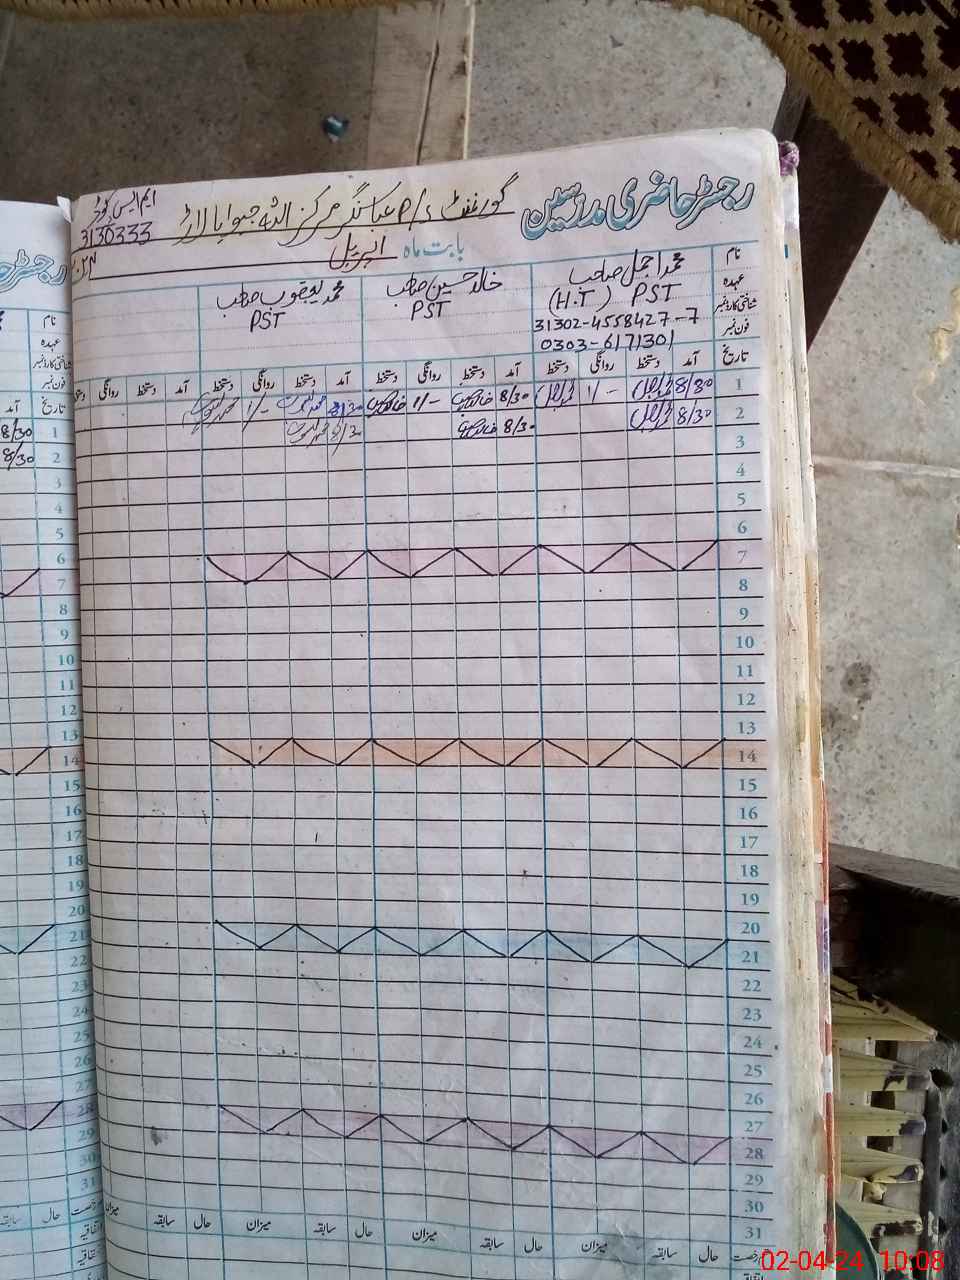 رجسٹر حاضری مدرسین
گورنمنٹ P/S عباسنگر مرکز اڈہ جیوایا لاڑ
ایم ایس کوڈ
3130333
بابت ماہ اپریل
نام
محمد اجمل صاحب
خالد حسین صاحب
محمد یعقوب صاحب
عہدہ
PST (H.T)
PST
PST
شناختی کارڈ نمبر
31302-4558427-7
فون نمبر
0303-6171301
تاریخ آمد دستخط روانگی دستخط آمد دستخط روانگی دستخط آمد دستخط روانگی دستخط آمد دستخط روانگی
1 8/30 1/- 8/30 1/- 8/30 1/-
2 8/30 8/30 8/30
3
4
5
6
7
8
9
10
11
12
13
14
15
16
17
18
19
20
21
22
23
24
25
26
27
28
29
30
31
حال سابقہ میزان حال سابقہ میزان حال سابقہ میزان حال سابقہ میزان
نام
عہدہ
شناختی کارڈ نمبر
فون نمبر
تاریخ آمد
1 8/30
2 8/30
3
4
5
6
7
8
9
10
11
12
13
14
15
16
17
18
19
20
21
22
23
24
25
26
27
28
29
30
31
حال سابقہ
02-04-24 10:08